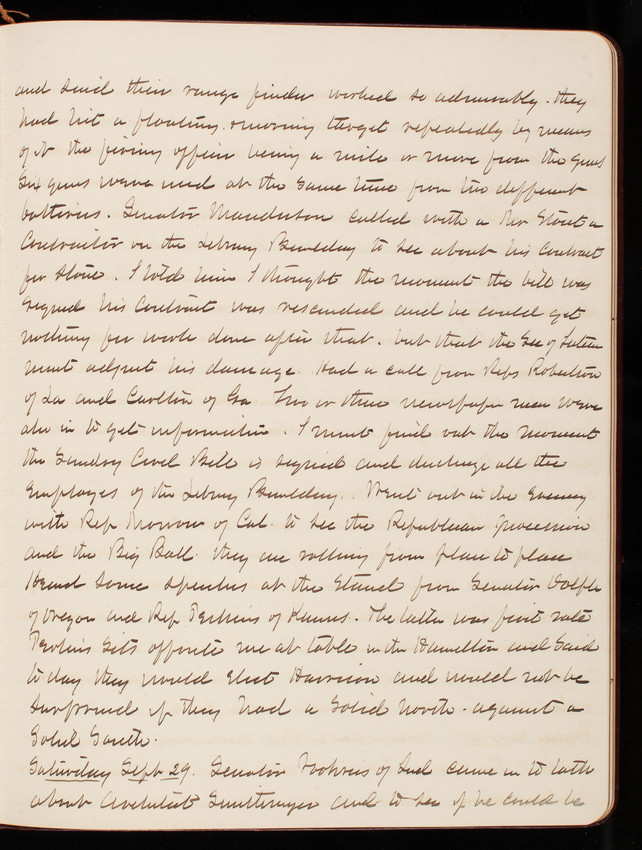 and said their range finder worked so admirably. they
had hit a floating & moving target repeatedly by means
of it the firing officer being a mile or more from the guns
Six guns were used at the same time from two different
batteries. Senator Manderson called with a Mr Stout a
Contractor on the Library Building to see about his contract
for stone. I told him I thought the moment the bill was
signed his contract was rescinded and he could get
nothing for work done after that. but that the Sec of Interior
must adjust his damage. Had a call from Reps Robertson
of La and Carlton of Ga Two or three newspaper men were
also in to get information. I must find out the moment
the Sundry Civil Bill is signed and discharge all the
Employes of the Library Building. Went out in the Evening
with Rep Morrow of Cal. to see the Republican procession
and the Big Ball. they are rolling from place to place
Heard some speeches at the Stand from Senator Dolph
of Oregon and Rep Perkins of Kansas. The latter was first rate
Perkins sits opposite me at table in the Hamilton and said
to day they would Elect Harrison and would not be
surprised if they had a Solid North - against a
Solid South.
Saturday Sept 29. Senator Voorhees of Ind came in to talk
about Architect Smithmeyer and to see if he could be